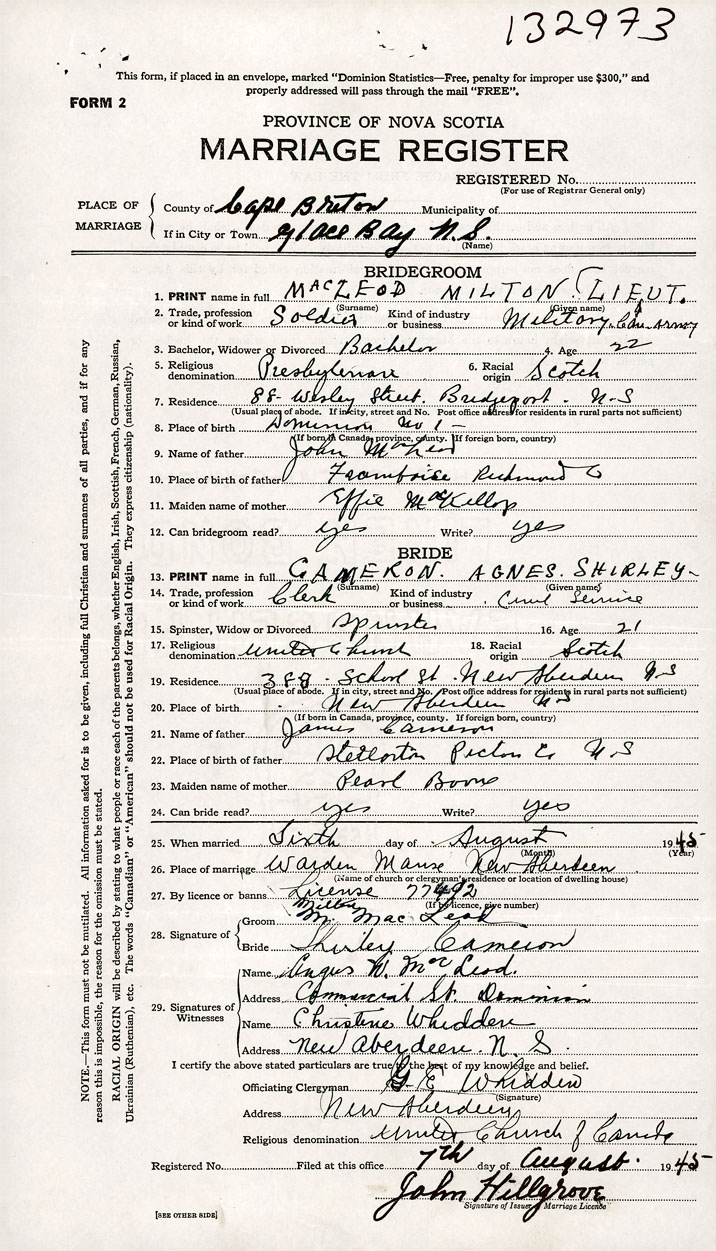 132973
This form, if placed in an envelope, marked "Dominion Statistics—Free, penalty for improper use $300," and
properly addressed will pass through the mail "FREE".
FORM 2
PROVINCE OF NOVA SCOTIA
MARRIAGE REGISTER
REGISTERED No.
(For use of Registrar General only)
PLACE OF MARRIAGE
County of Cape Breton Municipality of
If in City or Town Glace Bay N.S.
(Name)
BRIDEGROOM
1. PRINT name in full MACLEOD MILTON. (LIEUT.
(Surname) (Given name)
2. Trade, profession or kind of work Soldier Kind of industry or business Military, Can. Army
3. Bachelor, Widower or Divorced Bachelor 4. Age 22
5. Religious denomination Presbyterian 6. Racial origin Scotch
7. Residence 88- Wesley Street. Bridgeport. N-S
(Usual place of abode. If in city, street and No. Post office address for residents in rural parts not sufficient)
8. Place of birth Dominion No 1 -
(If born in Canada, province, county. If foreign born, country)
9. Name of father John MacLeod
10. Place of birth of father Framboise Richmond Co
11. Maiden name of mother Effie MacKillop
12. Can bridegroom read? yes Write? yes
BRIDE
13. PRINT name in full CAMERON. AGNES. SHIRLEY-
(Surname) (Given name)
14. Trade, profession or kind of work Clerk Kind of industry or business Civil Service
15. Spinster, Widow or Divorced Spinster 16. Age 21
17. Religious denomination United Church 18. Racial origin Scotch
19. Residence 388 - School St. New Aberdeen N-S
(Usual place of abode. If in city, street and No. Post office address for residents in rural parts not sufficient)
20. Place of birth New Aberdeen N-S
(If born in Canada, province, county. If foreign born, country)
21. Name of father James Cameron
22. Place of birth of father Stellorton Pictou Co N-S
23. Maiden name of mother Pearl Boone
24. Can bride read? yes Write? yes
25. When married Sixth day of August 1945
(Month) (Year)
26. Place of marriage Warden Manse New Aberdeen
(Name of church or clergyman's residence or location of dwelling house)
27. By licence or banns License 77492
(If by licence, give number)
28. Signature of
Groom Milton Mac Leod
Bride Shirley Cameron
29. Signatures of Witnesses
Name Angus W. McLeod.
Address Commercial St. Dominion
Name Christine Whidden
Address New Aberdeen. N. S.
I certify the above stated particulars are true to the best of my knowledge and belief.
Officiating Clergyman G. E. Whidden
(Signature)
Address New Aberdeen
Religious denomination United Church of Canada
Registered No. Filed at this office 7th day of August. 1945
John Hillgrove
Signature of Issuer of Marriage License
[SEE OTHER SIDE]
NOTE.—This form must not be mutilated. All information asked for is to be given, including full Christian and surnames of all parties, and if for any
reason this is impossible, the reason for the omission must be stated.
RACIAL ORIGIN will be described by stating to what people or race each of the parents belongs, whether English, Irish, Scottish, French, German, Russian,
Ukrainian (Ruthenian), etc. The words "Canadian" or "American" should not be used for Racial Origin. They express citizenship (nationality).